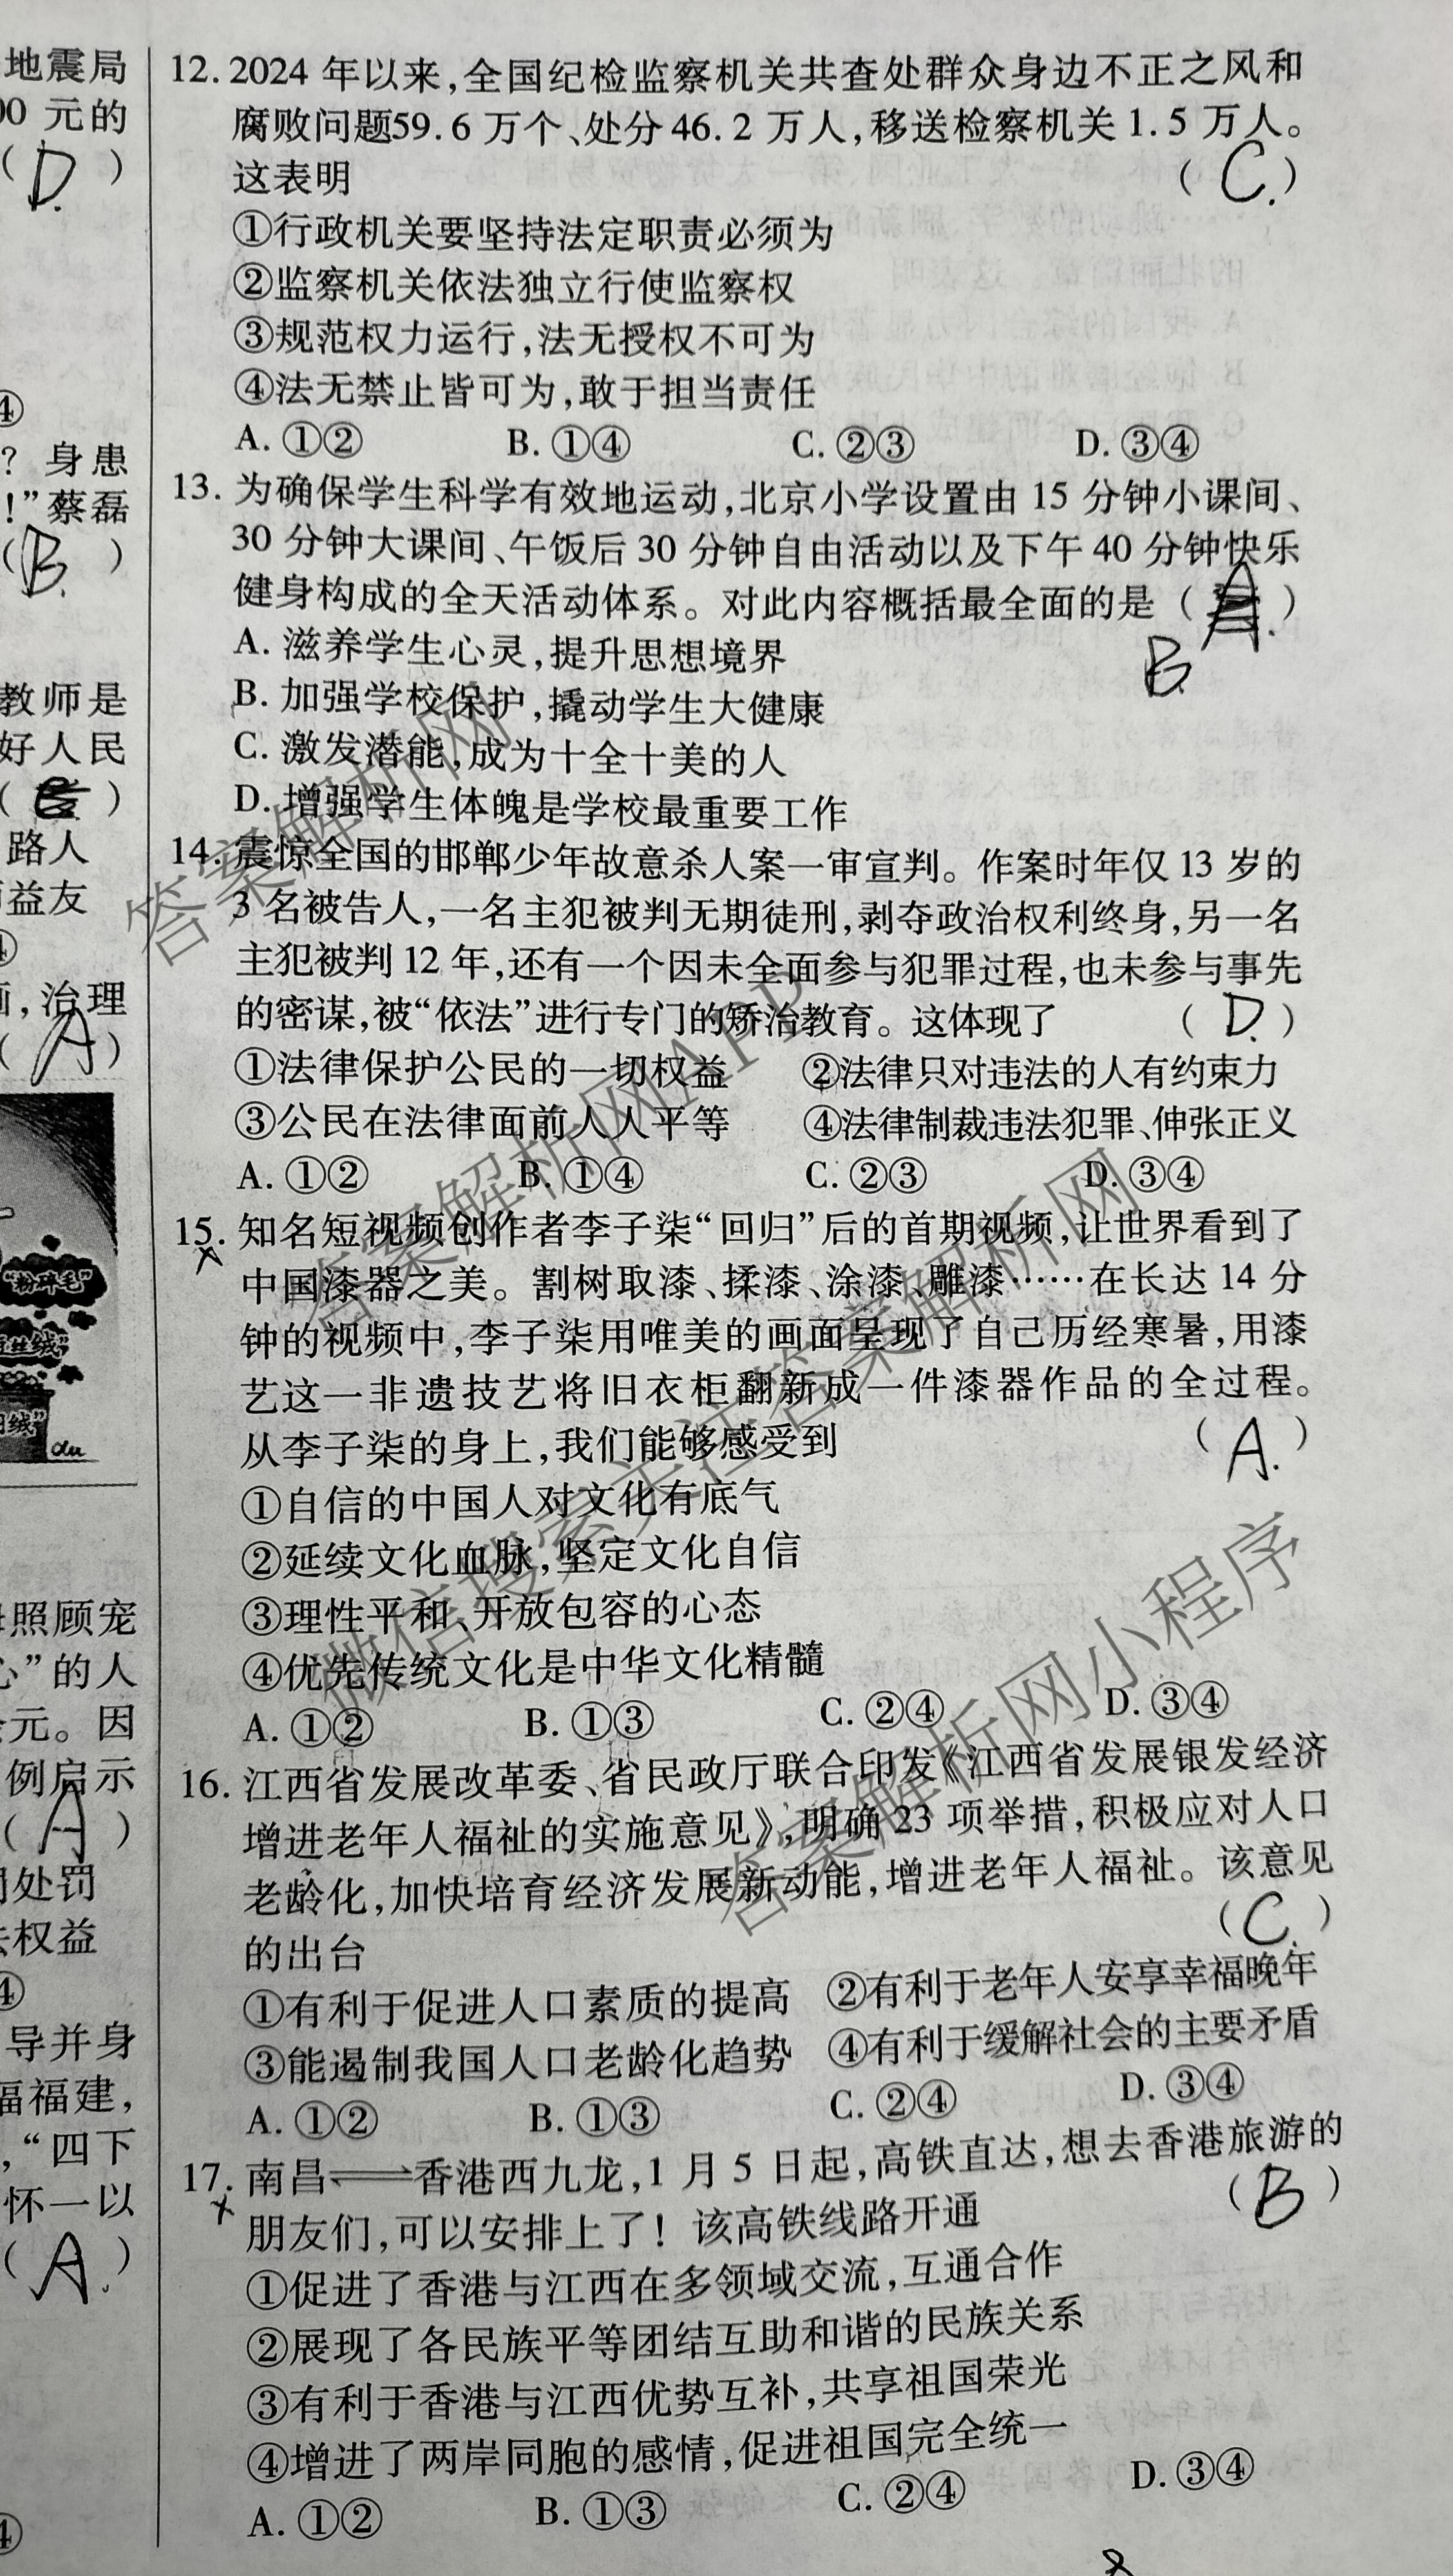 地震局
00 元的
( D. )
④
? 身患
!”蔡磊
( B. )
教师是
好人民
路人
益友
④
,治理
( A )
“粉碎毛”
丝绒”
绒”
du
照顾宠
心”的人
元。因
例启示
( A )
处罚
权益
④
导并身
福福建,
,“四下
怀一以
( A. )
④
12. 2024 年以来,全国纪检监察机关共查处群众身边不正之风和
腐败问题59.6 万个、处分 46.2 万人,移送检察机关 1.5 万人。
这表明 ( C. )
①行政机关要坚持法定职责必须为
②监察机关依法独立行使监察权
③规范权力运行,法无授权不可为
④法无禁止皆可为,敢于担当责任
A. ①② B. ①④ C. ②③ D. ③④
13. 为确保学生科学有效地运动,北京小学设置由 15 分钟小课间、
30 分钟大课间、午饭后 30 分钟自由活动以及下午 40 分钟快乐
健身构成的全天活动体系。对此内容概括最全面的是 ( A. )
B.
A. 滋养学生心灵,提升思想境界
B. 加强学校保护,撬动学生大健康
C. 激发潜能,成为十全十美的人
D. 增强学生体魄是学校最重要工作
14. 震惊全国的邯郸少年故意杀人案一审宣判。作案时年仅 13 岁的
3 名被告人,一名主犯被判无期徒刑,剥夺政治权利终身,另一名
主犯被判 12 年,还有一个因未全面参与犯罪过程,也未参与事先
的密谋,被“依法”进行专门的矫治教育。这体现了 ( D. )
①法律保护公民的一切权益 ②法律只对违法的人有约束力
③公民在法律面前人人平等 ④法律制裁违法犯罪、伸张正义
A. ①② B. ①④ C. ②③ D. ③④
15. 知名短视频创作者李子柒“回归”后的首期视频,让世界看到了
中国漆器之美。割树取漆、揉漆、涂漆、雕漆……在长达 14 分
钟的视频中,李子柒用唯美的画面呈现了自己历经寒暑,用漆
艺这一非遗技艺将旧衣柜翻新成一件漆器作品的全过程。
从李子柒的身上,我们能够感受到 ( A. )
①自信的中国人对文化有底气
②延续文化血脉,坚定文化自信
③理性平和、开放包容的心态
④优先传统文化是中华文化精髓
A. ①② B. ①③ C. ②④ D. ③④
16. 江西省发展改革委、省民政厅联合印发《江西省发展银发经济
增进老年人福祉的实施意见》,明确 23 项举措,积极应对人口
老龄化,加快培育经济发展新动能,增进老年人福祉。该意见
的出台 ( C. )
①有利于促进人口素质的提高 ②有利于老年人安享幸福晚年
③能遏制我国人口老龄化趋势 ④有利于缓解社会的主要矛盾
A. ①② B. ①③ C. ②④ D. ③④
17. 南昌⇌香港西九龙,1 月 5 日起,高铁直达,想去香港旅游的
朋友们,可以安排上了! 该高铁线路开通 ( B )
①促进了香港与江西在多领域交流,互通合作
②展现了各民族平等团结互助和谐的民族关系
③有利于香港与江西优势互补,共享祖国荣光
④增进了两岸同胞的感情,促进祖国完全统一
A. ①② B. ①③ C. ②④ D. ③④
答案解析网
答案解析网APP
微信搜索关注答案解析网
答案解析网小程序